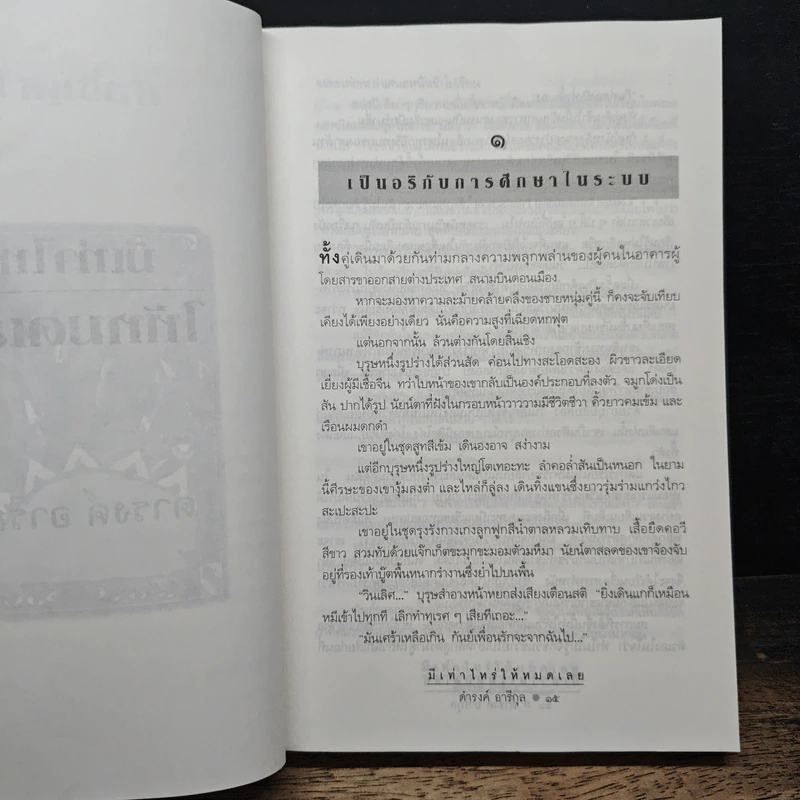 ๑
เป็นอริกับการศึกษาในระบบ
ทั้งคู่เดินมาด้วยกันท่ามกลางความพลุกพล่านของผู้คนในอาคารผู้
โดยสารขาออกสายต่างประเทศ สนามบินดอนเมือง
หากจะมองหาความละม้ายคล้ายคลึงของชายหนุ่มคู่นี้ ก็คงจะจับเทียบ
เคียงได้เพียงอย่างเดียว นั่นคือความสูงที่เฉียดหกฟุต
แต่นอกจากนั้น ล้วนต่างกันโดยสิ้นเชิง
บุรุษหนึ่งรูปร่างได้ส่วนสัด ค่อนไปทางสะโอดสะอง ผิวขาวละเอียด
เยี่ยงผู้มีเชื้อจีน ทว่าใบหน้าของเขากลับเป็นองค์ประกอบที่ลงตัว จมูกโด่งเป็น
สัน ปากได้รูป นัยน์ตาที่ฝังในกรอบหน้าวาววามมีชีวิตชีวา คิ้วยาวคมเข้ม และ
เรือนผมดกดำ
เขาอยู่ในชุดสูทสีเข้ม เดินองอาจ สง่างาม
แต่อีกบุรุษหนึ่งรูปร่างใหญ่โตเทอะทะ ลำคอล่ำสันเป็นหนอก ในยาม
นี้ศีรษะของเขางุ้มลงต่ำ และไหล่ก็ลู่ลง เดินทิ้งแขนซึ่งยาวรุ่มร่ามแกว่งไกว
สะเปะสะปะ
เขาอยู่ในชุดรุงรังกางเกงลูกฟูกสีน้ำตาลหลวมเทิบทาบ เสื้อยืดคอวี
สีขาว สวมทับด้วยแจ๊กเก็ตขะมุกขะมอมตัวมหึมา นัยน์ตาสลดของเขาจ้องจับ
อยู่ที่รองเท้าบู๊ตพื้นหนากรำงานซึ่งย่ำไปบนพื้น
“วินเลิศ...” บุรุษสำอางหน้าหยกส่งเสียงเตือนสติ “ยิ่งเดินแกก็เหมือน
หมีเข้าไปทุกที เลิกทำทุเรศ ๆ เสียทีเถอะ...”
“มันเศร้าเหลือเกิน กันย์เพื่อนรักจะจากฉันไป...”
มีเท่าไหร่ให้หมดเลย
ดำรงค์ อารีกุล ● ๑๕